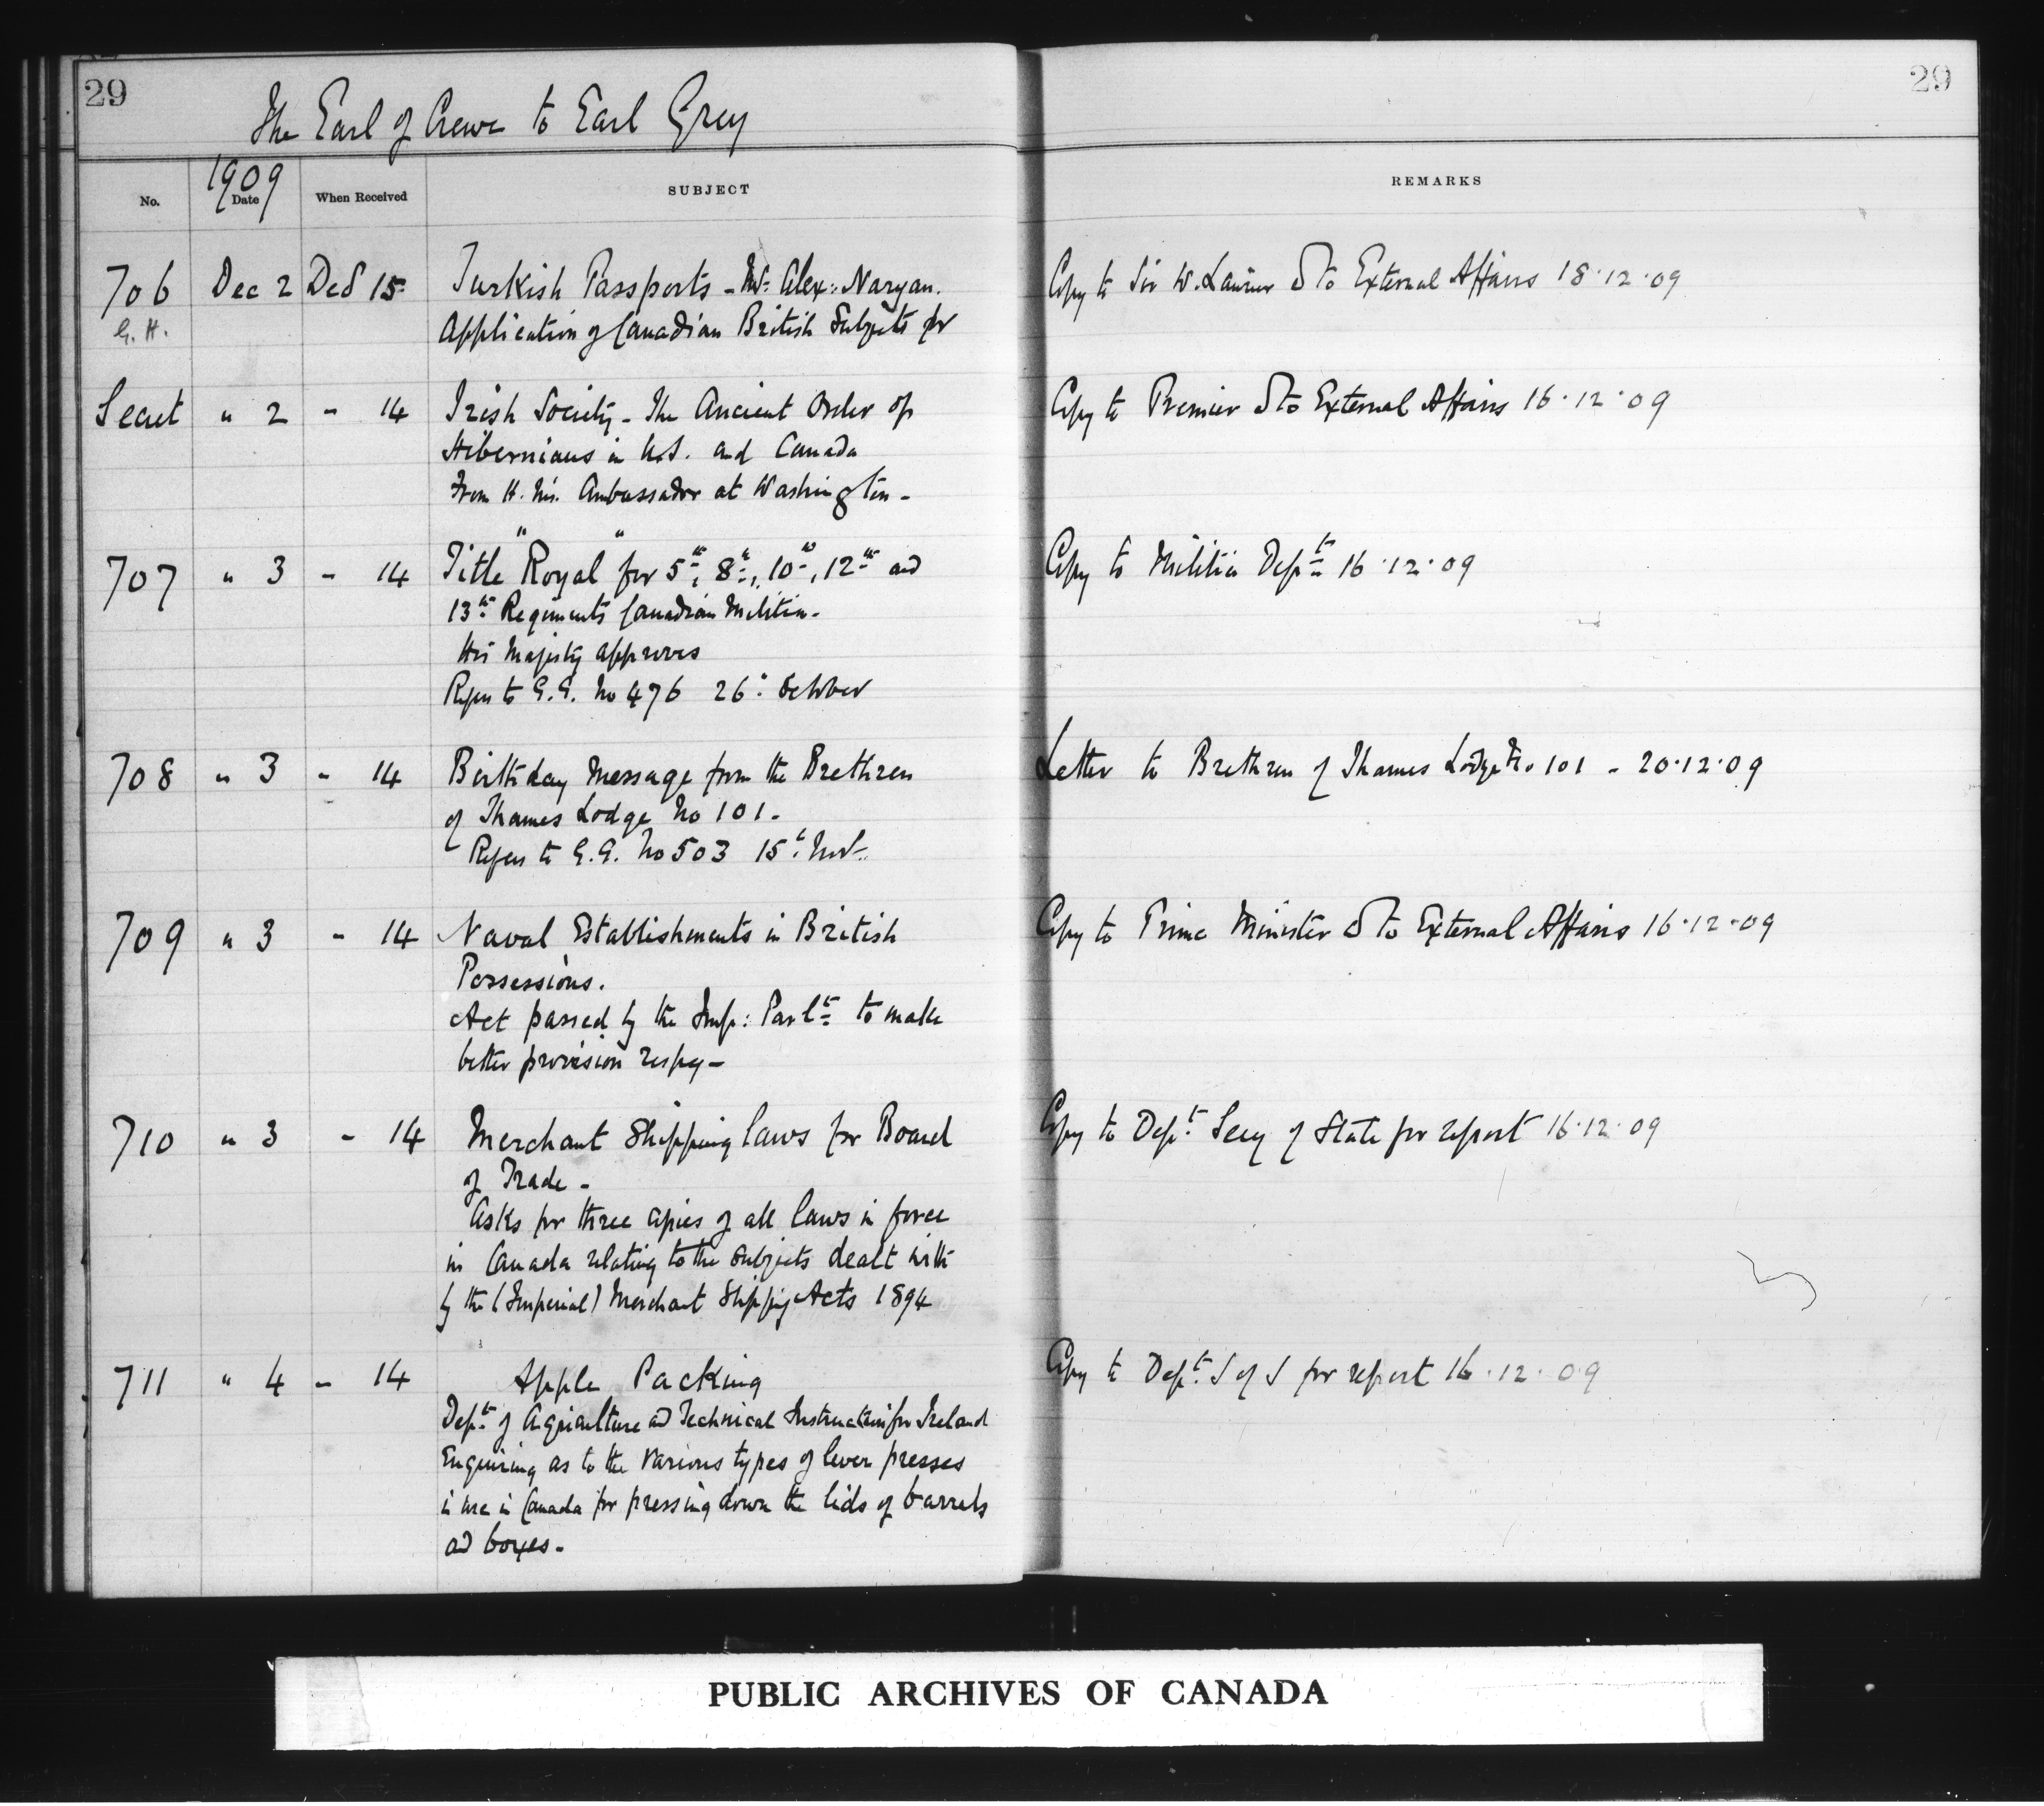 29
29
The Earl of Crewe to Earl Grey
No.
1909
Date
When Received
SUBJECT
REMARKS
706 Dec 2 Dec 15 Turkish Passports - Mr. Alex: Naryan. Copy to Sir W. Laurier & to External Affairs 18.12.09
G. H. Application of Canadian British Subjects for
Secret " 2 - 14 Irish Society - The Ancient Order of Copy to Premier & to External Affairs 16.12.09
Hibernians in U.S. and Canada
From H. M's. Ambassador at Washington -
707 " 3 - 14 Title "Royal" for 5th, 8th, 10th, 12th and Copy to Militia Dept 16.12.09
13th Regiments Canadian Militia -
His Majesty approves
Refers to G.G. No 476 26th October
708 " 3 - 14 Birthday Message from the Brethren Letter to Brethren of Thames Lodge No 101 - 20.12.09
of Thames Lodge No 101 -
Refers to G.G. No 503 15th Nov.
709 " 3 - 14 Naval Establishments in British Copy to Prime Minister & to External Affairs 16.12.09
Possessions.
Act passed by the Imp: Parlt to make
better provision respg -
710 " 3 - 14 Merchant Shipping laws for Board Copy to Dept. Secy of State for report 16.12.09
of Trade -
Asks for three copies of all laws in force
in Canada relating to the subjects dealt with
by the (Imperial) Merchant Shipping Acts 1894
711 " 4 - 14 Apple Packing Copy to Dept. S of S for report 16.12.09
Dept. of Agriculture and Technical Instruction for Ireland
Enquiring as to the various types of lever presses
in use in Canada for pressing down the lids of barrels
and boxes -
PUBLIC ARCHIVES OF CANADA